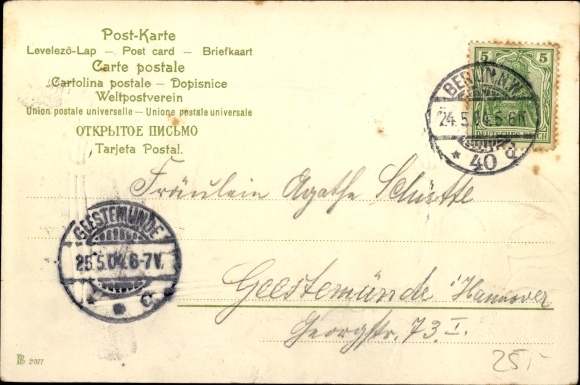 Post-Karte
Levelező-Lap – Post card – Briefkaart
Carte postale
Cartolina postale – Dopisnice
Weltpostverein
Union postale universelle – Unione postale universale
ОТКРЫТОЕ ПИСЬМО
Tarjeta Postal.
5 5
DEUTSCHES REICH
BERLIN N.W.
24.5.04.5-6N.
* 40 c
Fräulein Agathe Schütte
GEESTEMÜNDE
25.5.04.6-7V.
* c
Geestemünde i/Hannover
Georgstr. 73 I.
2077
25,-